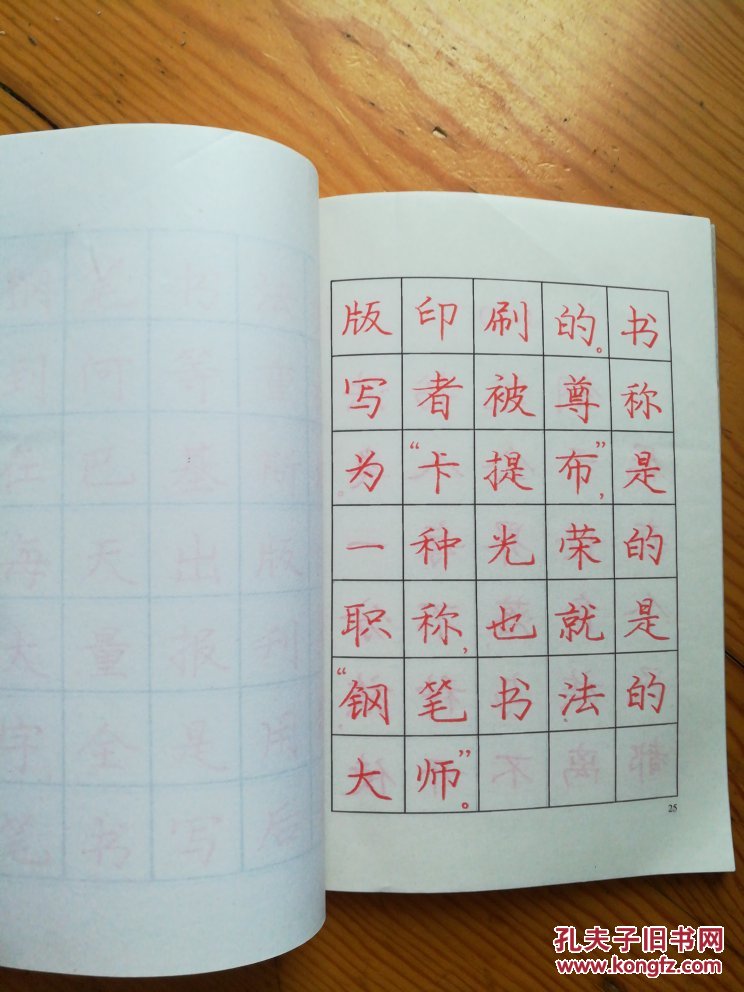 版印刷的。书
写者被尊称
为“卡提布”,是
一种光荣的
职称,也就是
“钢笔书法的
大师”。
25
孔夫子旧书网
www.kongfz.com